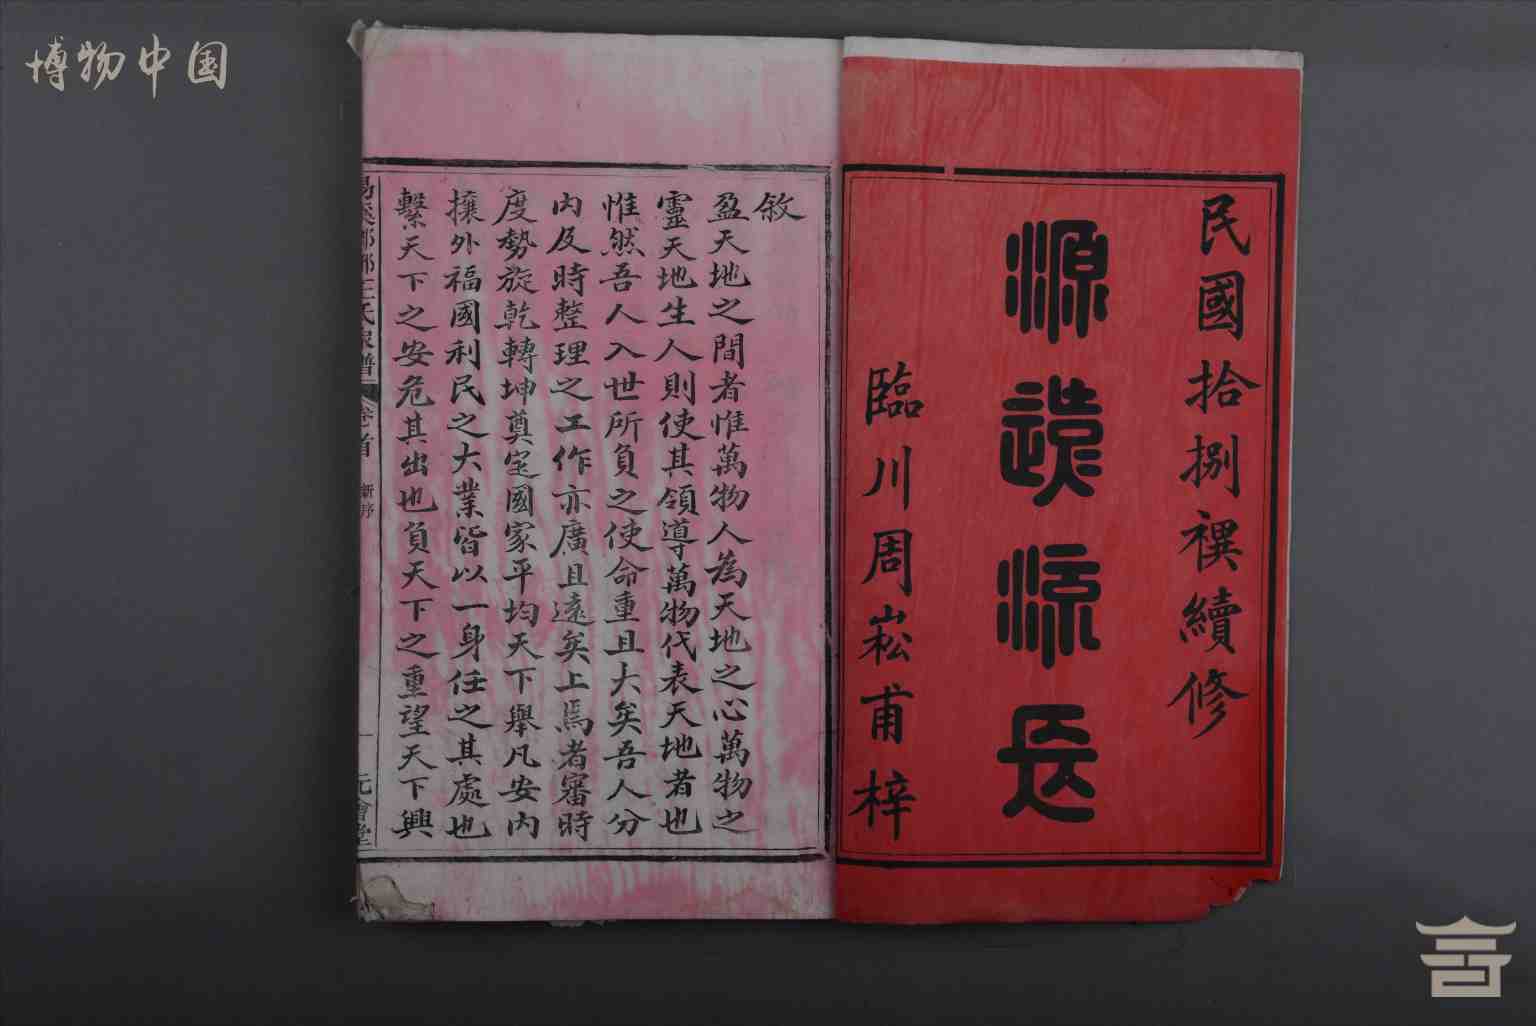 博物中国
民國拾捌禩續修
源遠流長
臨川周崧甫梓
敘
盈天地之間者惟萬物人為天地之心萬物之
靈天地生人則使其領導萬物代表天地者也
惟然吾人入世所負之使命重且大矣吾人分
内及時整理之工作亦廣且遠矣上焉者審時
度勢旋乾轉坤奠定國家平均天下舉凡安内
攘外福國利民之大業皆以一身任之其處也
繫天下之安危其出也負天下之重望天下興
王氏家譜 卷首 新序 一 元會堂